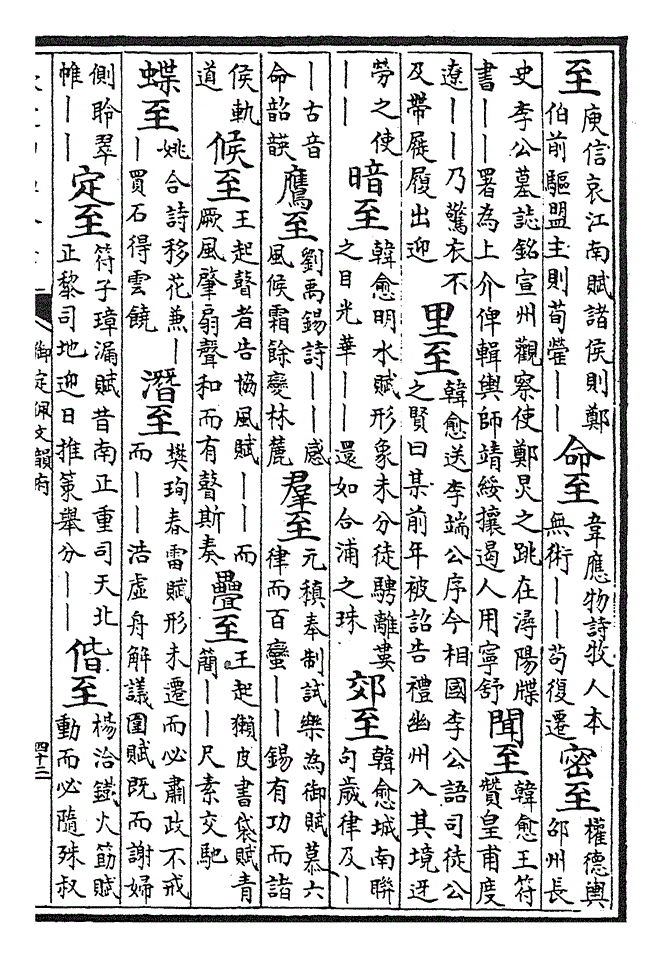 至庾信哀江南賦諸侯則鄭伯前驅盟主則荀罃——命至韋應物詩牧人本無術——苟復遷密至權德輿邵州長
史李公墓誌銘宣州觀察使鄭炅之跳在潯陽牒書——署為上介俾輯輿師靖綏攘遏人用寧舒聞至韓愈王符贊皇甫度
遼——乃驚衣不及帶屣履出迎里至韓愈送李端公序今相國李公語司徒公之賢曰某前年被詔告禮幽州入其境迓
勞之使——暗至韓愈明水賦形象未分徒騁離婁之目光華——還如合浦之珠郊至韓愈城南聯句歲律及—
—古音命韶韺鷹至劉禹錫詩——感風候霜餘變林麓羣至元稹奉制試樂為御賦慕六律而百蠻——錫有功而諸
侯軌道候至王起瞽者告協風賦——而厥風肇扇聲和而有瞽斯奏疊至王起獺皮書袋賦青簡——尺素交馳
蝶至姚合詩移花兼——買石得雲饒潛至樊珣春雷賦形未遷而必肅政不戒而——浩虛舟解議圍賦既而謝婦
側聆翠帷——定至符子璋漏賦昔南正重司天北正黎司地迎日推策舉分——偕至楊洽鐵火筯賦動而必隨殊叔
御定佩文韻府
四十三